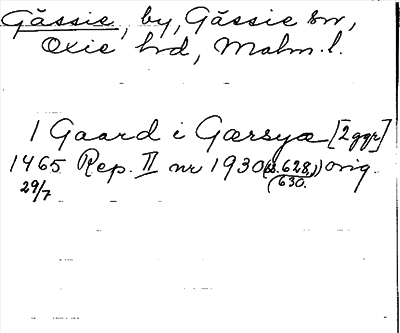 Gåssie, by, Gåssie sn,
Oxie hrd, Malm. l.
1 Gaard i Gœrsyœ [2 ggr]
1465 Rep. II nr 1930 (s. 628,) orig.
29/7 (630.